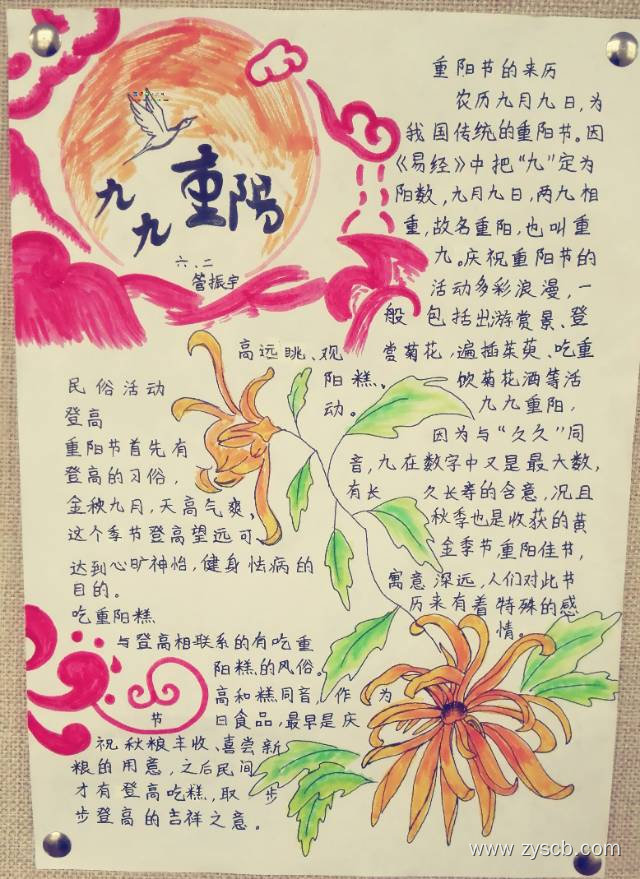 九九重陽
六.二
管振宇
重阳节的来历
农历九月九日,为
我国传统的重阳节。因
《易经》中把“九”定为
阳数,九月九日,两九相
重,故名重阳,也叫重
九。庆祝重阳节的
活动多彩浪漫,一
般包括出游赏景、登
高远眺、观赏菊花,遍插茱萸、吃重
阳糕、饮菊花酒等活
动。九九重阳,
因为与“久久”同
音,九在数字中又是最大数,
有长久长寿的含意,况且
秋季也是收获的黄
金季节,重阳佳节,
寓意深远,人们对此节
历来有着特殊的感
情。
民俗活动
登高
重阳节首先有
登高的习俗,
金秋九月,天高气爽,
这个季节登高望远可
达到心旷神怡,健身怯病的
目的。
吃重阳糕
与登高相联系的有吃重
阳糕的风俗。
高和糕同音,作为
节日食品,最早是庆
祝秋粮丰收、喜尝新
粮的用意,之后民间
才有登高吃糕,取步
步登高的吉祥之意。
www.zyscb.com